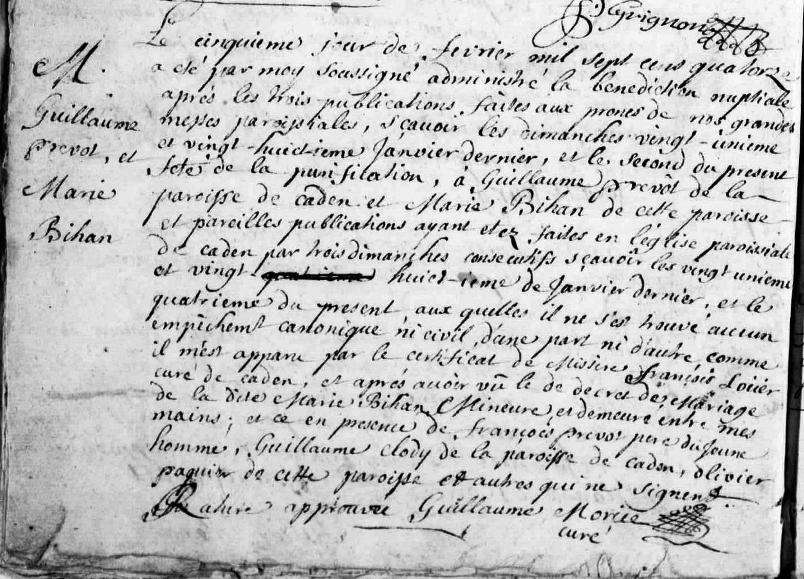 Grignon
M.
Guillaume
prevot, et
Marie
Bihan
Le cinquieme jour de fevrier mil sept cens quatorze
a eté par moy soussigné administré la benediction nuptiale
aprés les trois publications faites aux prones de nos grandes
messes paroissiales, sçavoir les dimanches vingt-unieme
et vingt-huictieme Janvier dernier, et le second du present
feté de la purification, à Guillaume prevôt de la
paroisse de caden et Marie Bihan de cette paroisse
et pareilles publications ayant etez faites en l'eglise paroissiale
de caden par trois dimanches consecutifs sçavoir les vingt unieme
et vingt huict-ieme de Janvier dernier, et le
quatrieme du present, aux quelles il ne s'es trouvé aucun
empêchemt canonique ni civil, d'une part ni d'autre, comme
il m'est apparu par le certificat de Missire François Loiier
curé de caden, et aprés avoir vû le de decret de Mariage
de la dite Marie Bihan Mineure, et demeuré entre mes
mains; et ce en presence de François prevot pere du jeune
homme, Guillaume clody de la paroisse de caden, olivier
paquier de cette paroisse et autres qui ne signent
Rature approuvee Guillaume Morice
curé